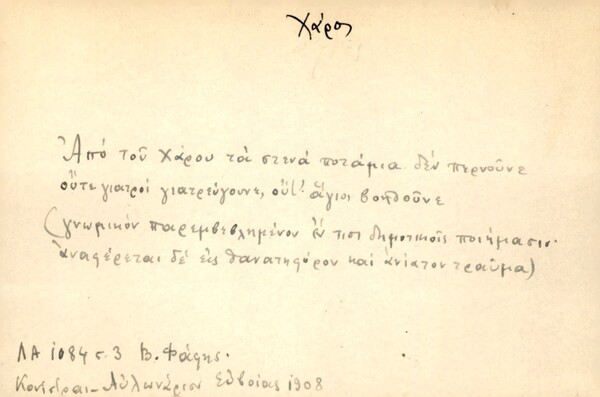 Χάρος
Ἀπό τοῦ Χάρου τά στενά ποτάμια δέν περνοῦνε
οὔτε γιατροί γιατρεύγουνε, οὔτ' ἅγιοι βοηθοῦνε
(γνωμικόν παρεμβεβλημένον ἔν τισι δημοτικοῖς ποιήμασιν·
ἀναφέρεται δέ εἰς θανατηφόρον καί ἀνίατον τραῦμα)
ΛΑ 1084 σ. 3 Β. Φάβης.
Κονίστραι - Αὐλωνάριον Εὐβοίας 1908